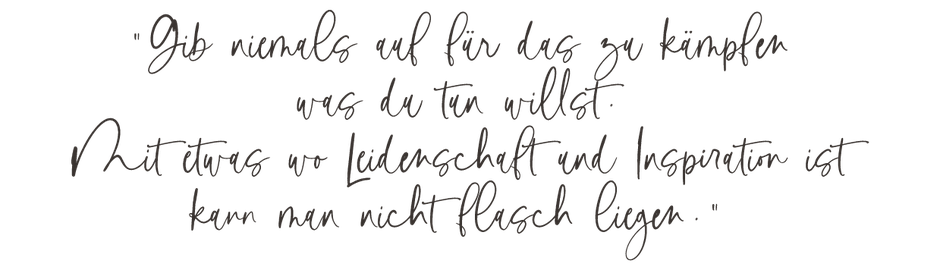 "Gib niemals auf für das zu kämpfen
was du tun willst.
Mit etwas wo Leidenschaft und Inspiration ist
kann man nicht flasch liegen."